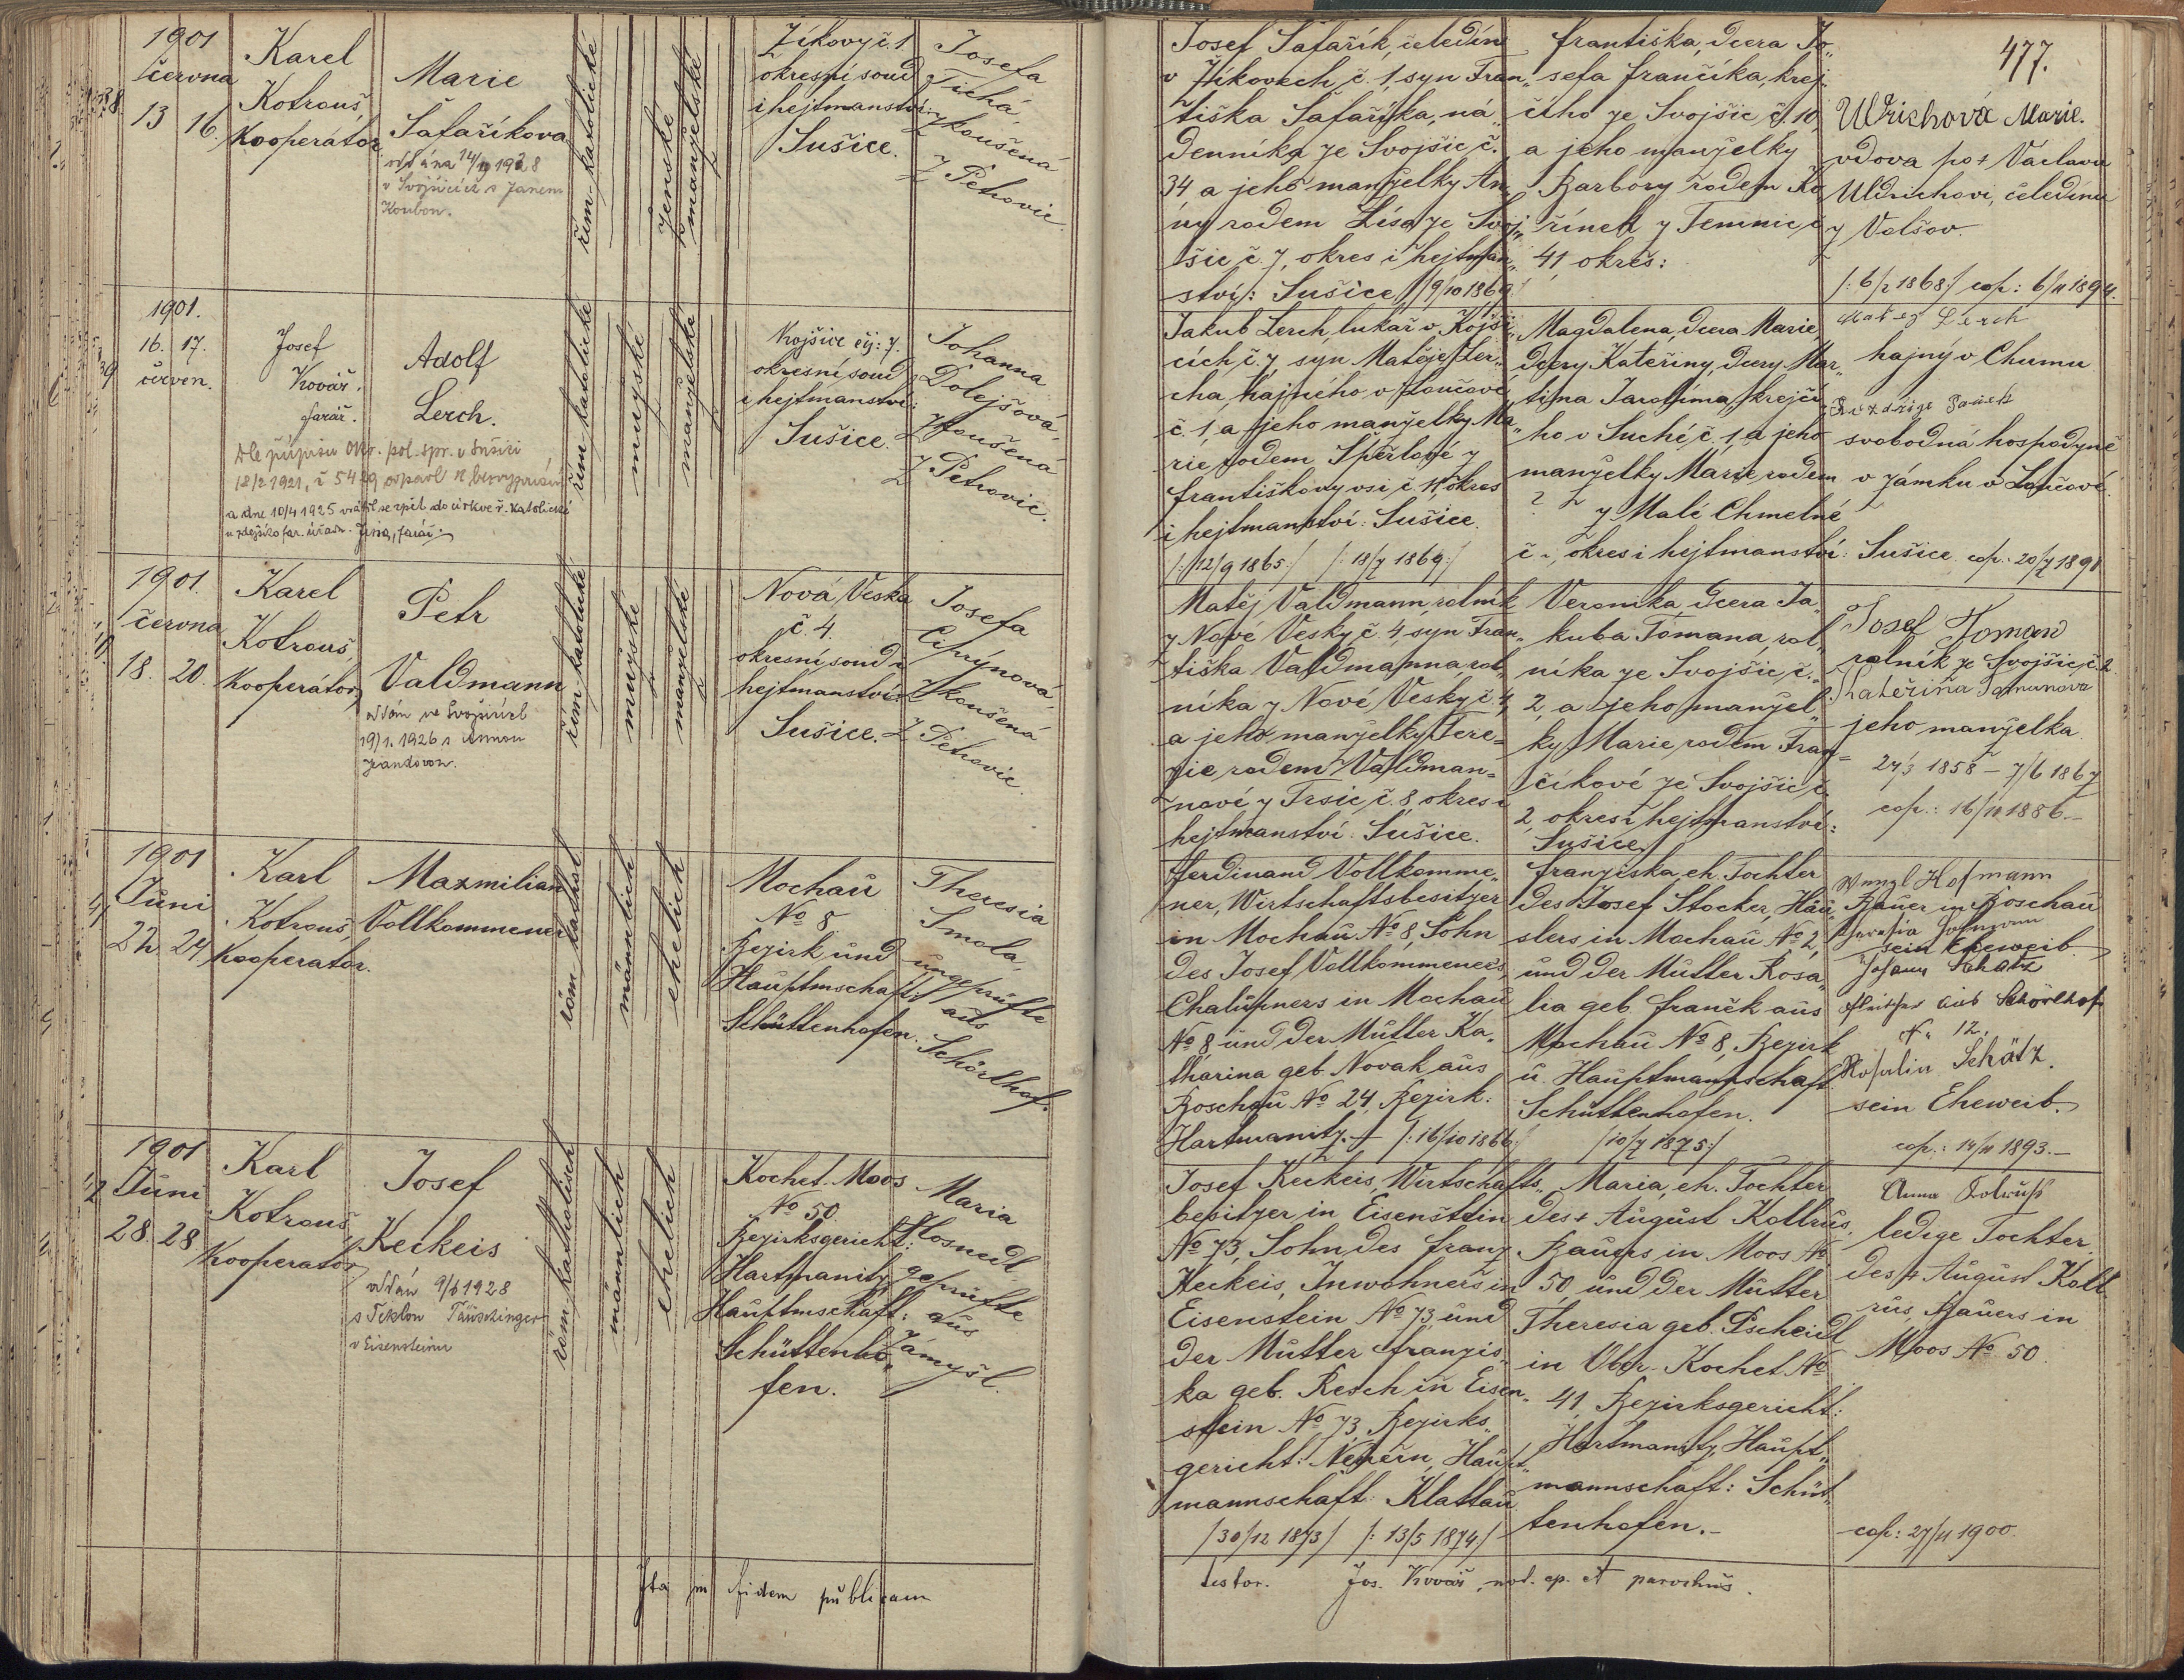 477.
1901
června
38.
13 16.
Karel
Kotrouš,
Kooperátor
Marie
Šafaříkova
oddána 14/ 1928
v Svojšicích s Janem
Koubou.
řím. katolické
ženské
manželské
Žíkovy č. 1
okresní soud
i hejtmanství:
Sušice.
Josefa
Tichá,
zkoušená
z Petrovic.
Josef Šafařík, čeledín
v Žíkovech č. 1, syn Fran„
tiška Šafaříka, ná„
denníka ze Svojšic č.
34 a jeho manželky An„
ny rodem Lísa ze Svoj„
šic č. 7, okres i hejtman„
ství: Sušice /9/10 1869
Františka, dcera Jo„
sefa Frančíka, krej„
čího ze Svojšic č. 10,
a jeho manželky
Barbory rodem Ko
řínek z
41, okres:
Ulrichová Marie.
vdova po + Václavu
Uldrichovi, čeledínu
z Volšov.
/: 6/2 1868 :/ cop: 6/11 1894.
1901.
39
16. 17.
červen.
Josef
Kovář.
farář.
Adolf
Lerch.
Dle přípisu Okr. pol. spr. v Sušici
18/2 1921, č 5429 odpadl k bezvyznání
a dne 10/4 1925 vrátil se zpět do církve ř. katolické
u zdejšího far. úřadu. farář.
řím. katolické
mužské
manželské
Kojšice čís: 7.
okresní soud
i hejtmanství:
Sušice.
Johanna
Dolejšová,
zkoušená
z Petrovic.
Jakub Lerch, lukař v Kojši„
cích č. 7, syn Matěje Ler„
cha, hajného v Loučové
č. 1, a jeho manželky Ma„
rie rodem Šperlové z
Františkovy vsi č. 11, okres
i hejtmanství: Sušice.
/: 12/9 1865 :/ /: 18/7 1869 :/
Magdalena, dcera Marie,
dcery Kateřiny, dcery Mar„
tina Jarolíma, krejčí„
ho v Suché č. 1, a jeho
manželky Marie rodem
? z Malé Chmelné
č. -, okres i hejtmanství: Sušice. cop: 20/7 1891
Matěj Lerch
hajný v Chumu
svobodná hospodyně
v zámku v Loučové.
1901.
června
40.
18. 20.
Karel
Kotrouš,
Kooperátor
Petr
Valdmann
oddán ve Svojšicích
19/1. 1926 s Annou
Jandovou.
řím. katolické
mužské
manželské
Nová Veska
č. 4.
okresní soud i
hejtmanství:
Sušice.
Josefa
Čihrýnová,
zkoušená
z Petrovic.
Matěj Valdmann, rolník
z Nové Vesky č. 4, syn Fran„
tiška Valdmanna, rol„
níka z Nové Vesky č. 4,
a jeho manželky Tere=
zie rodem Valdman=
nové z Trsic č. 8 okres i
hejtmanství: Sušice.
Veronika, dcera Ja„
kuba Tomana, rol„
níka ze Svojšic č.
2, a jeho manžel„
ky Marie, rodem Fran=
číkové ze Svojšic č.
2, okres i hejtmanství:
Sušice.
Josef Toman
rolník ze Svojšic č. 2
Kateřina Tomanová
jeho manželka.
27/3 1858 - 7/6 1867
cop.: 16/11 1886.-
1901
Juni
41
22. 24.
Karl
Kotrouš,
Kooperator.
Maxmilian
Vollkommener
röm. kathol
männlich
ehelich
Mochau
No 8
Bezirk und
Hauptmschaft
Schüttenhofen.
Theresia
Smola,
ungeprüfte
aus
Schörlhof.
Ferdinand Vollkomme„
ner, Wirtschaftsbesitzer
in Mochau No 8, Sohn
des Josef Vollkommener's,
Chalupners in Mochau
No 8 und der Mutter Ka„
tharina geb. Novak aus
Boschau No 24, Bezirk:
Hartmanitz. /: 16/10 1866 :/
Franziska, eh. Tochter
des Josef Stocker, Häu„
slers in Mochau No 2,
und der Mutter Rosa„
lia geb. Franěk aus
Mochau No 8, Bezirk
u. Hauptmannschaft
Schüttenhofen.
/10/7 1875 :/
Wenzl Hofmann
Bauer in Boschau
Theresia Hofmann
sein Eheweib.
Johann Schätz
aus Schörlhof
No 12,
Rosalia Schätz.
sein Eheweib.
cop.: 14/11 1893.-
1901
42 Juni
28. 28
Karl
Kotrouš,
Kooperator
Josef
Keckeis
oddán 9/6 1928
s Teklou Täuschinger
v Eisensteinu
röm. katholisch
männlich
ehelich
Kochet Moos
No 50.
Bezirksgericht:
Hartmanitz,
Hauptmschaft:
Schüttenho„
fen.
Maria
Hosnedl,
geprüfte
aus
Zamyšl.
Josef Keckeis, Wirtschafts„
besitzer in Eisenstein
No 73, Sohn des Franz
Keckeis, Inwohners in
Eisenstein No 73, und
der Mutter Franzis„
ka geb. Resch in Eisen„
stein No 73, Bezirks„
gericht: Neuern, Haupt„
mannschaft: Klattau
/30/12 1873/ /: 13/5 1874 :/
Maria, eh. Tochter
des + August Kollrus,
Bauers in Moos No
50, und der Mutter
Theresia geb. Pscheidl
in Ober-Kochet No
41, Bezirksgericht:
Hartmanitz, Haupt„
mannschaft: Schüt„
tenhofen.-
Anna
ledige Tochter
des + August Koll
rus, Bauers in
Moos No 50.
cop: 27/11 1900.
Ita in fidem publicam
testor. Jos. Kovář, not. ep. et parochus.